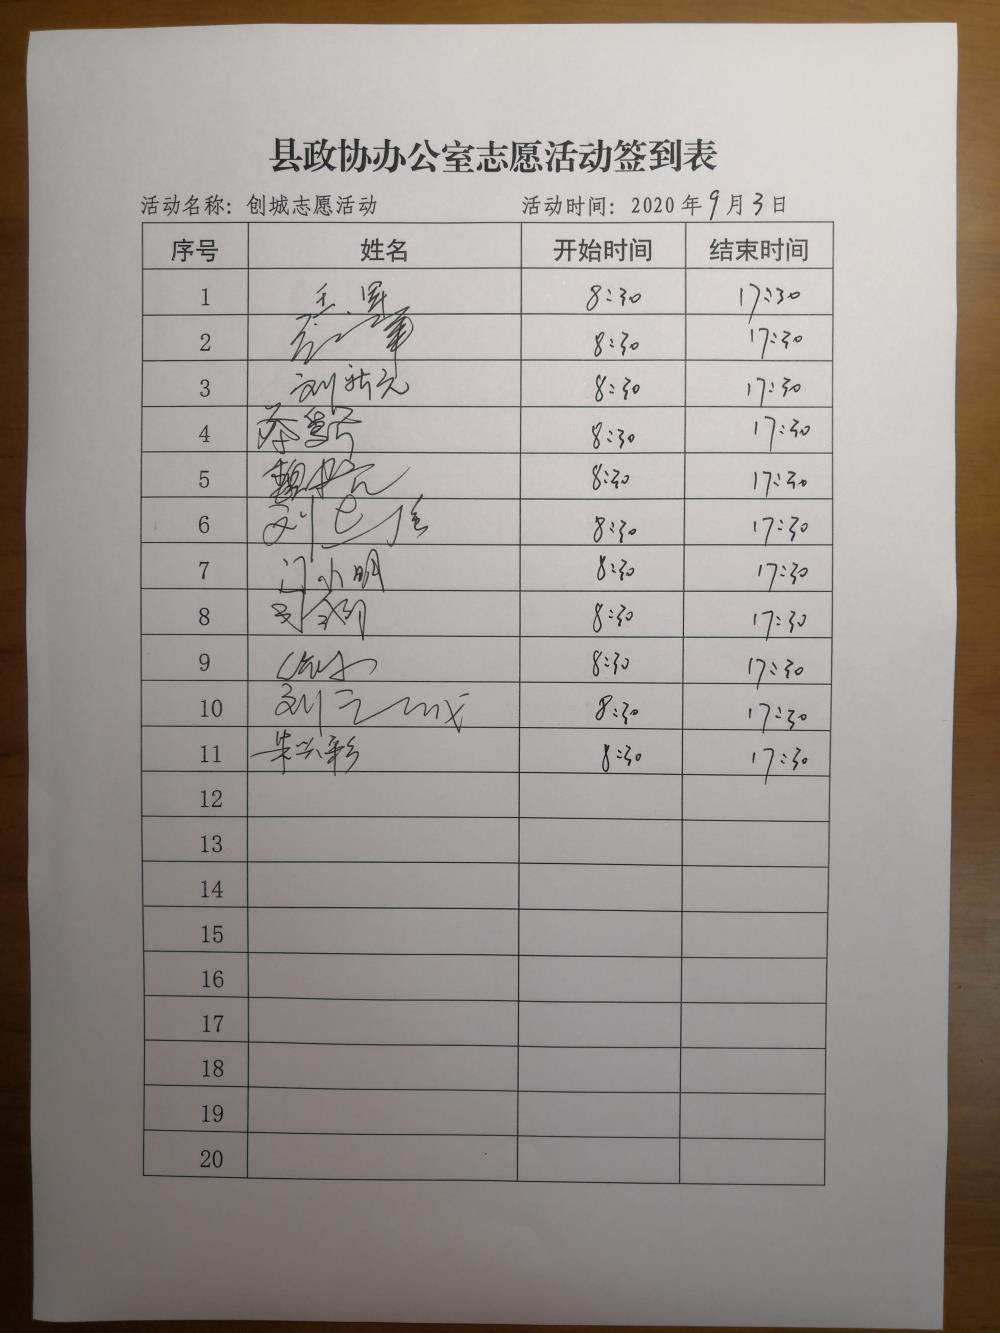 县政协办公室志愿活动签到表
活动名称：创城志愿活动 活动时间：2020年9月3日
序号 姓名 开始时间 结束时间
1 8:30 17:30
2 8:30 17:30
3 刘新元 8:30 17:30
4 8:30 17:30
5 8:30 17:30
6 刘 8:30 17:30
7 门小明 8:30 17:30
8 8:30 17:30
9 8:30 17:30
10 刘 8:30 17:30
11 朱兴彩 8:30 17:30
12
13
14
15
16
17
18
19
20